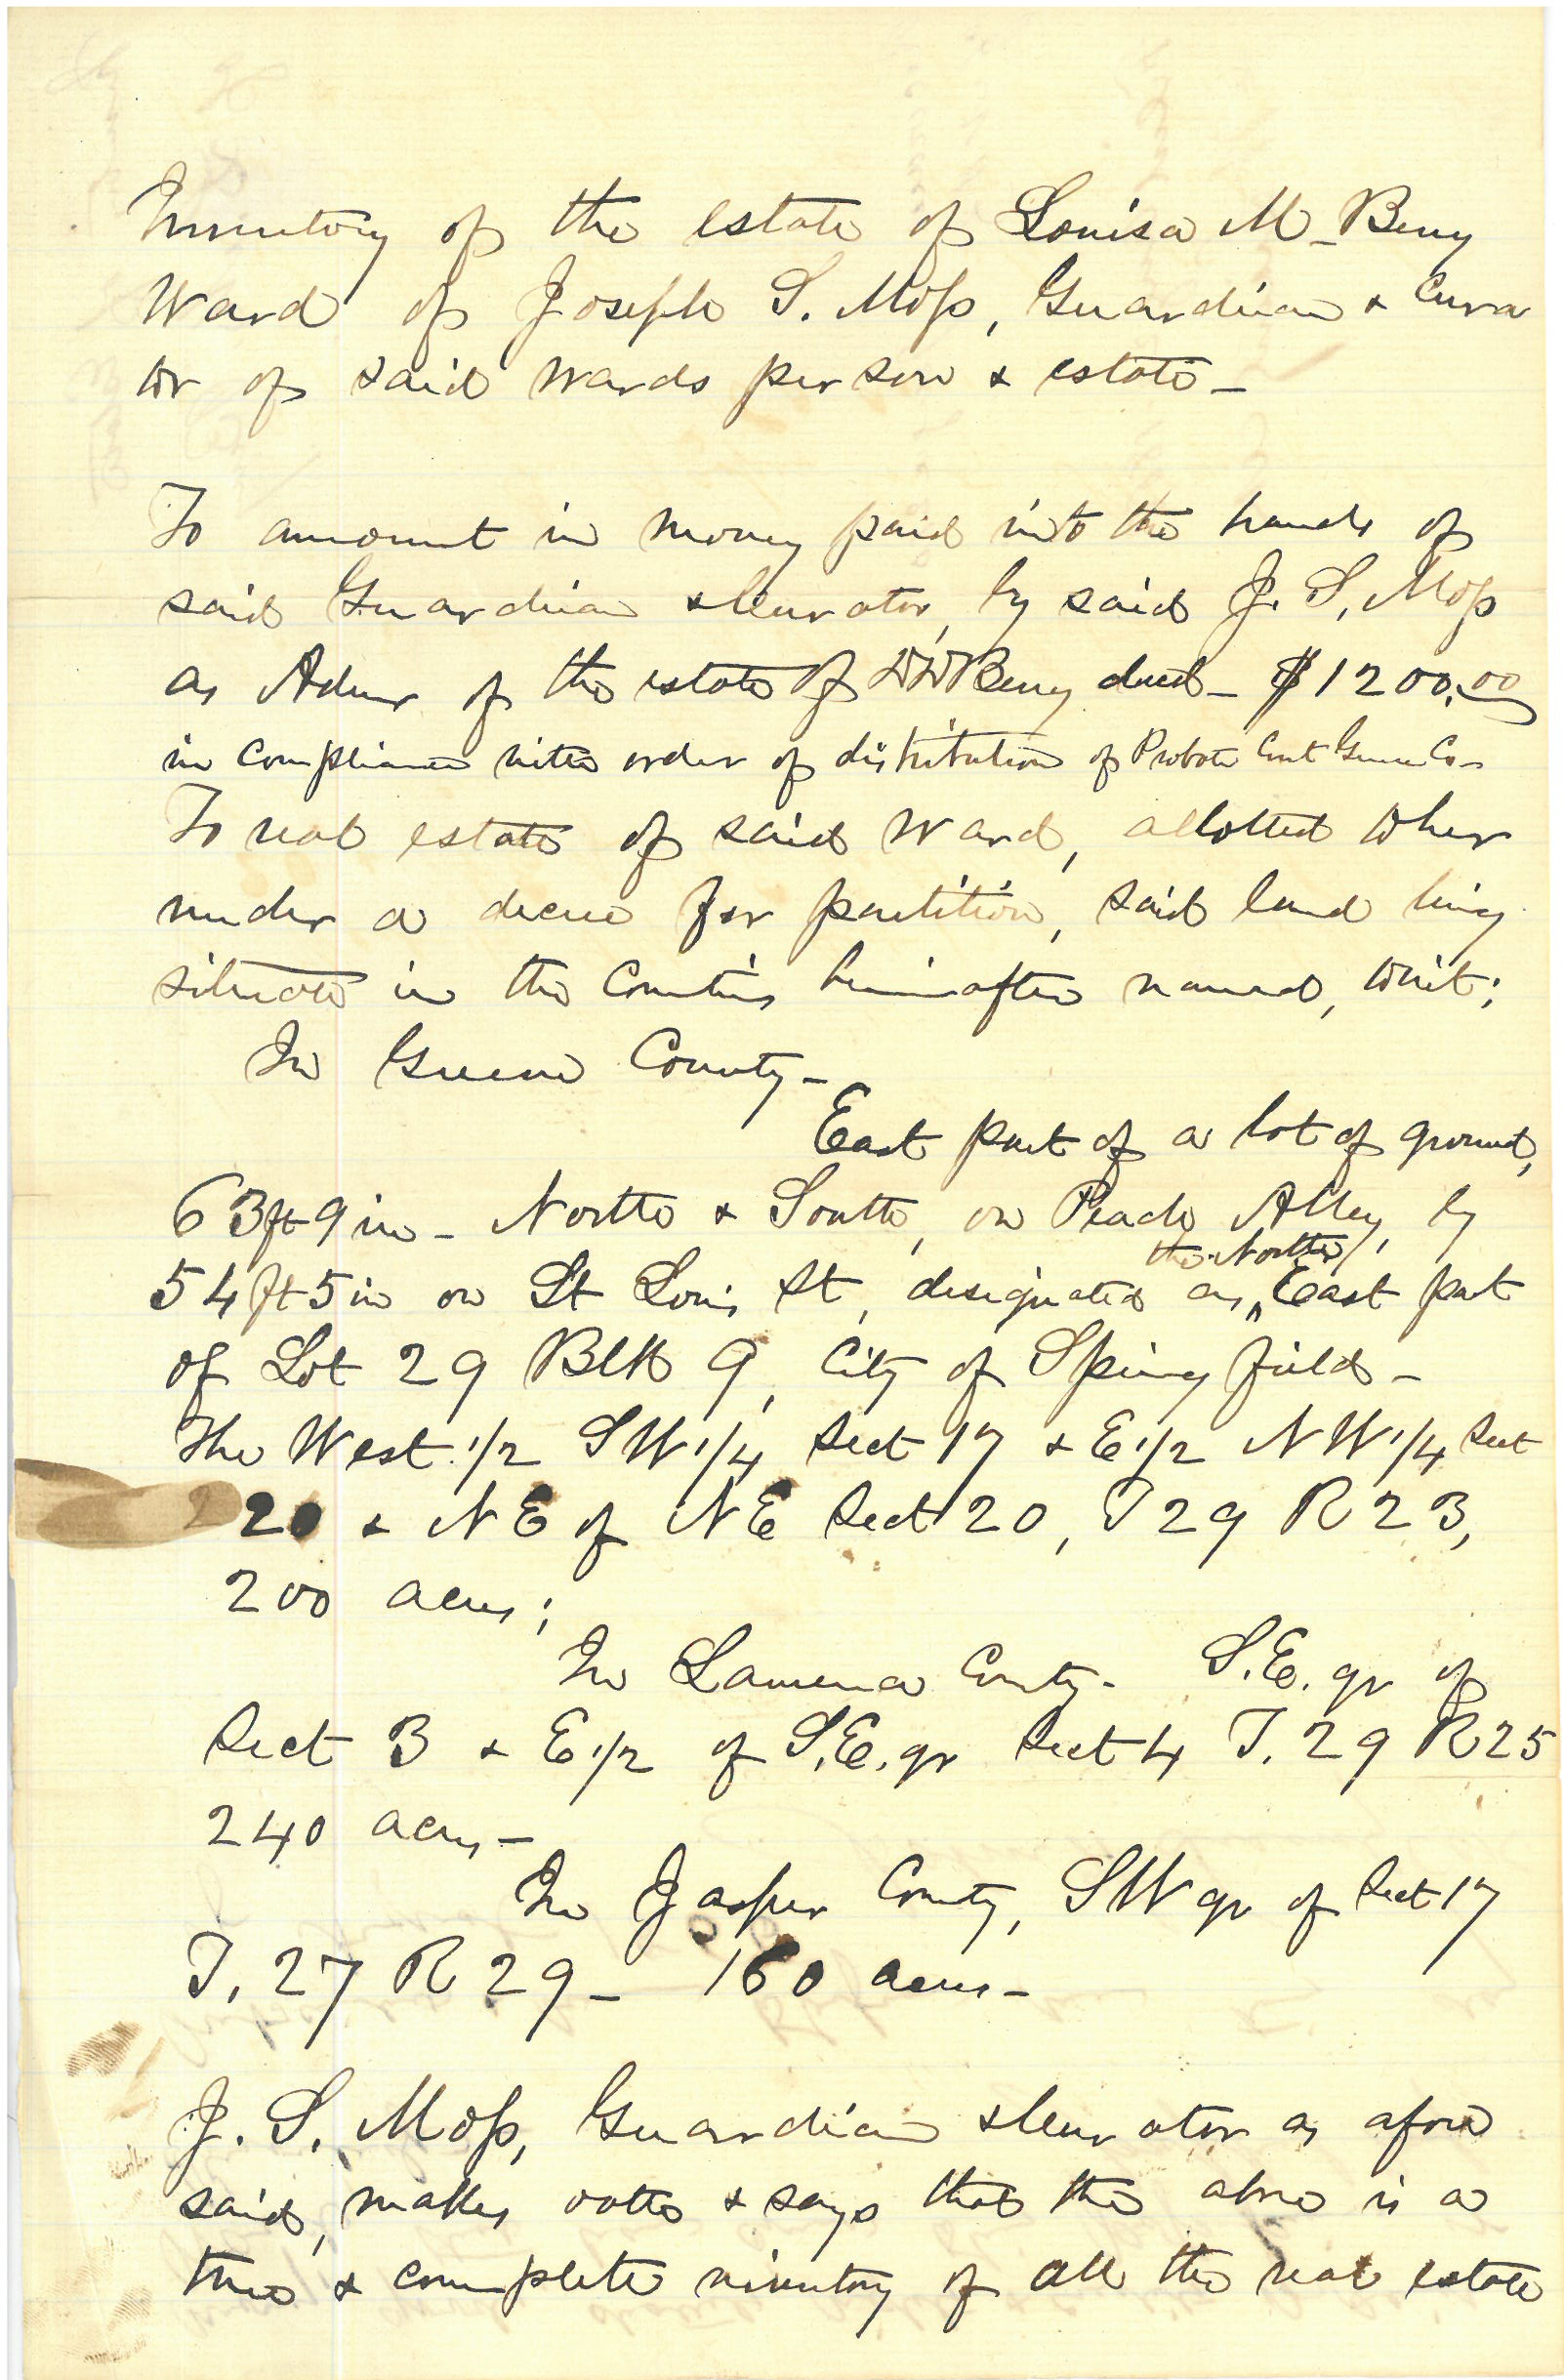 Inventory of the estate of Louisa M. Berry
Ward of Joseph S. Moss, Guardian & Cura
tor of said wards person & estate –
To amount in money paid into the hands of
said Guardian & Curator, by said J. S. Moss
as Admr of the estate of D D Berry decd – $1200.00
in compliance with order of distribution of Probate Court Greene Co –
To real estate of said Ward, allotted to her
under a decree for partition, said land being
situate in the Counties hereinafter named, towit;
In Greene County –
East part of a lot of ground,
63ft 9in – North & South, on Peach Alley, by
the North
54ft 5in on St Louis St, designated as East part
of Lot 29 Blk 9, City of Springfield –
The West 1/2 SW 1/4 Sect 17 & E 1/2 NW 1/4 Sect
20 & NE of NE Sect 20, T 29 R 23,
200 acres;
In Lawrence County – S.E. qr of
Sect 3 & E 1/2 of S.E. qr Sect 4 T. 29 R 25
240 acres –
In Jasper County, SW qr of Sect 17
T. 27 R 29 – 160 acres –
J. S. Moss, Guardian & Curator as afore
said, makes oath & says that the above is a
true & complete inventory of all the real estate